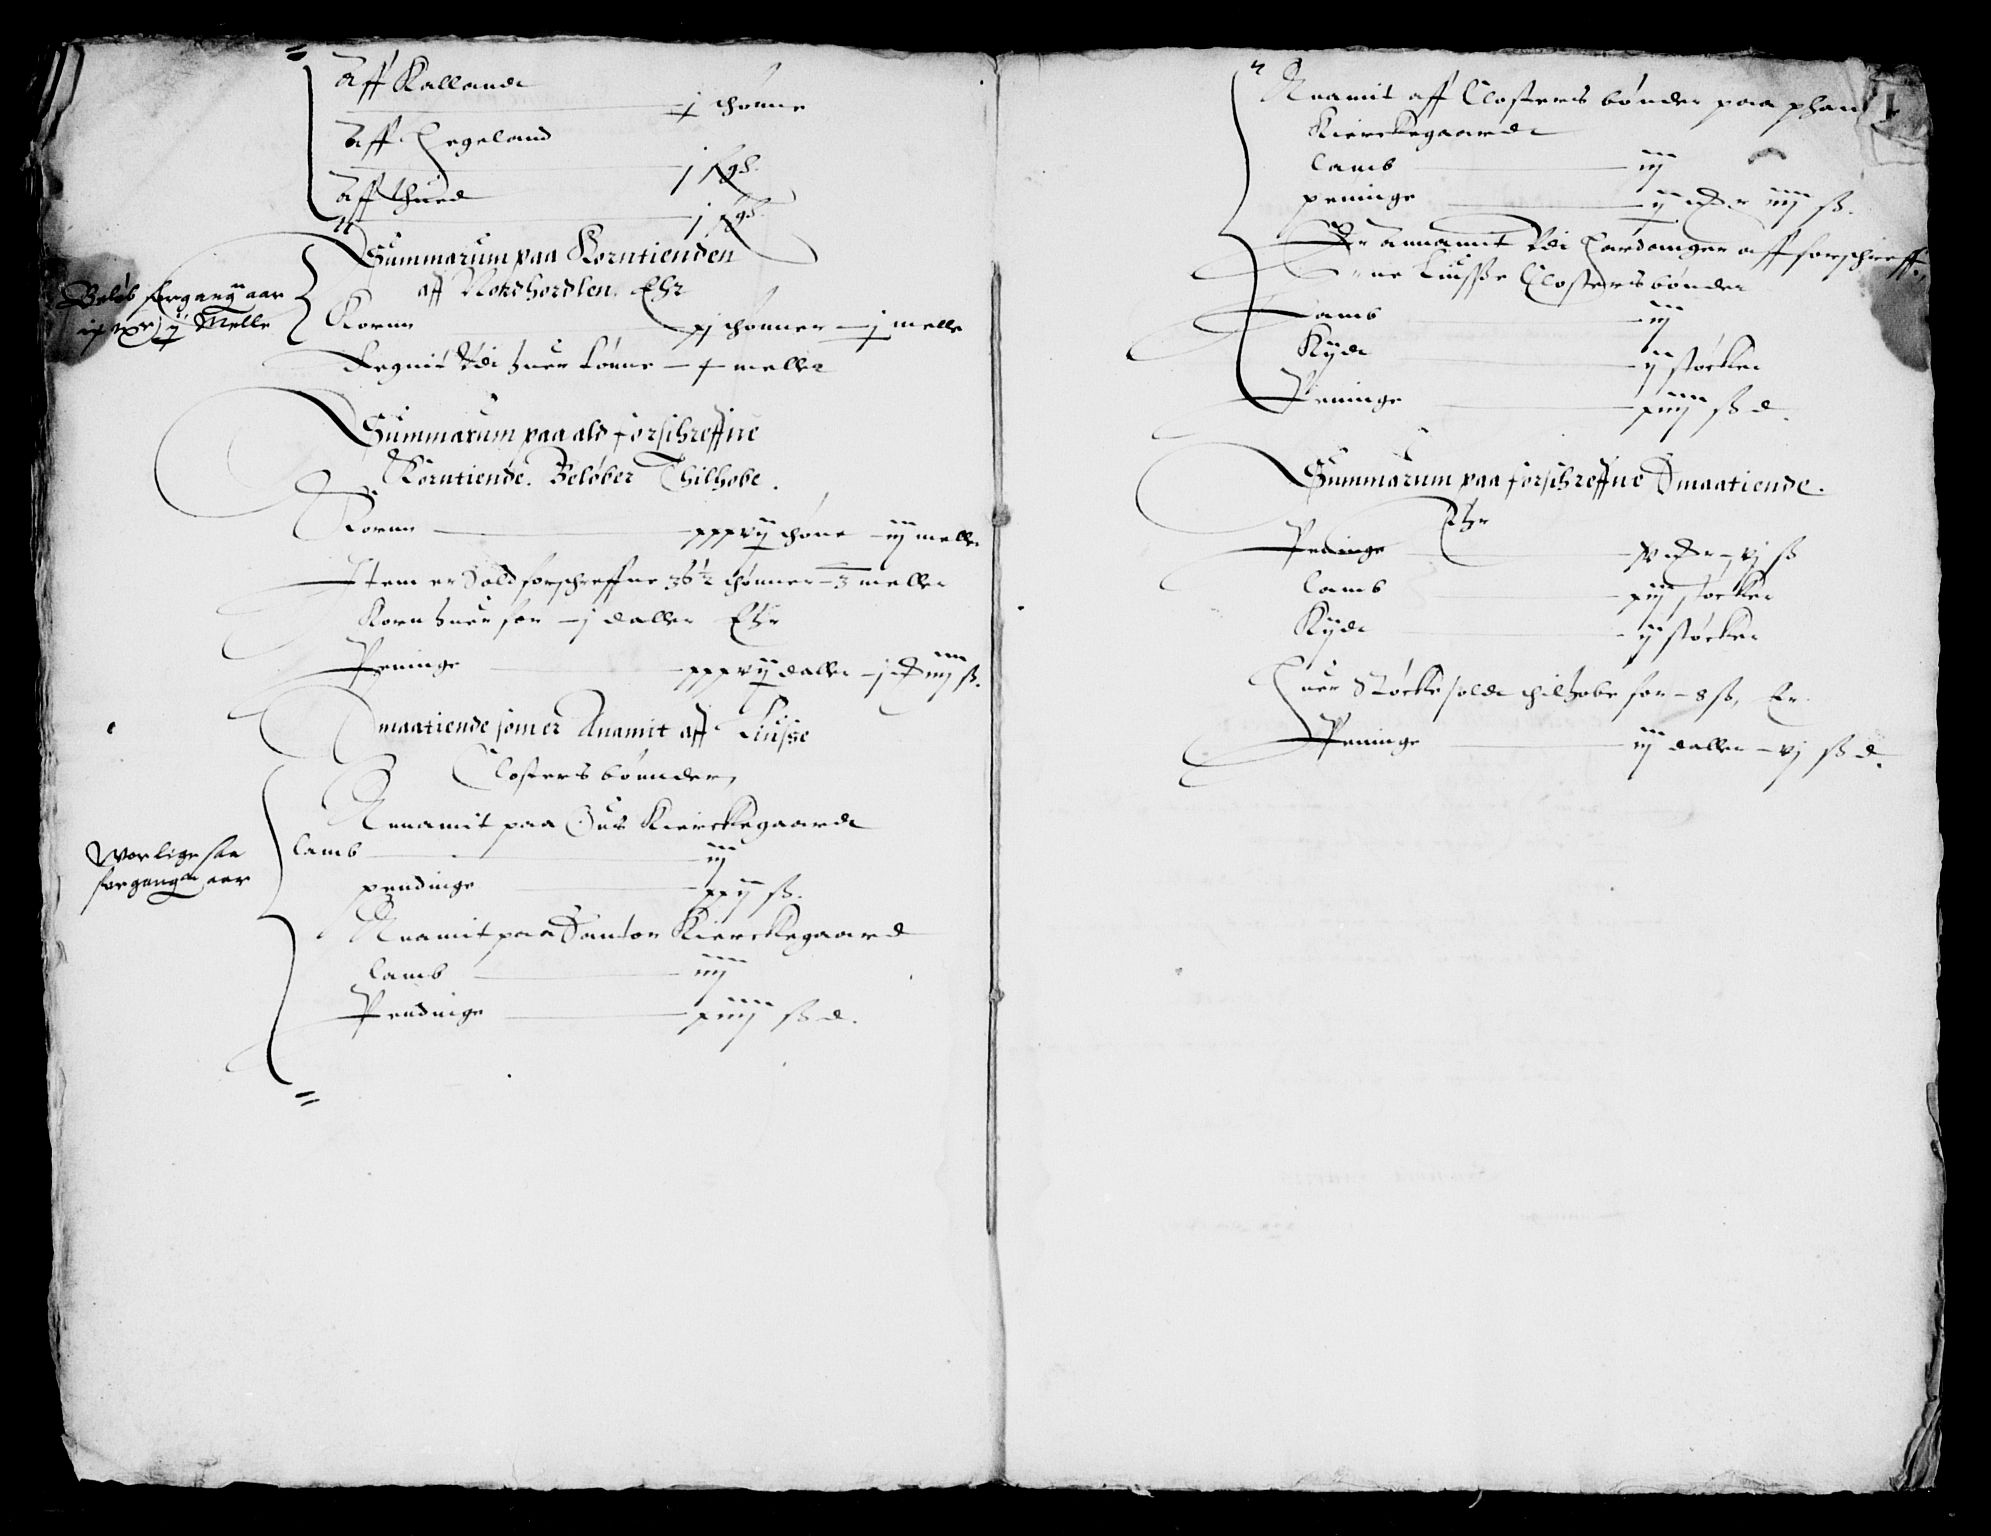 Aff Kallandt
j thønne
Aff Hegeland
j sgh.
Aff thued
j sgh.
Summarum paa Korntienden
aff Nordhordlen. Ehr
Beløb forgangn aar
ix thr) ij Melle
Kornn xj thønner – j melle
Regnit Vdi huer tønne – melle
Summarum paa ald forschreffne
Korntiende. Beløber Thilhobe.
Kornn xxxvij thøne – iij melle
Item er Sold forschreffne 36½ thønner – 3 meller
Korn huer for – j daller Ehr
Peninge xxxvij daller – j iiij ß.
Smaatiende som er Anamit aff Liusse
Closters bønnder,
Annamit paa Ous Kierckegaardt
Worlige saa
forgangen aar
lamb iij
pendinge xxij ß.
Anamit paa Samlor Kierckegaard
Lamb iiij
Pendinge xiiij ß d.
Anamit aff Closters bønder paa phan
Kierckegaardt
lamb iij
peninge ij iiij ß.
Er Annamit Vdi Hardanger aff forschreff-
ne Liusse Closters bønder
Lamb iij
Kijdt ij støcker
Peninge xiiij ß d.
Summarum paa forschreffne Smaatiende.
Ehr
Peninge – vj ß
lamb xiij støcker
Kijdt ij støcker
Huer Støcke soldt thilhobe for – 8 ß, Er
Peninge iij daller – vj ß d.